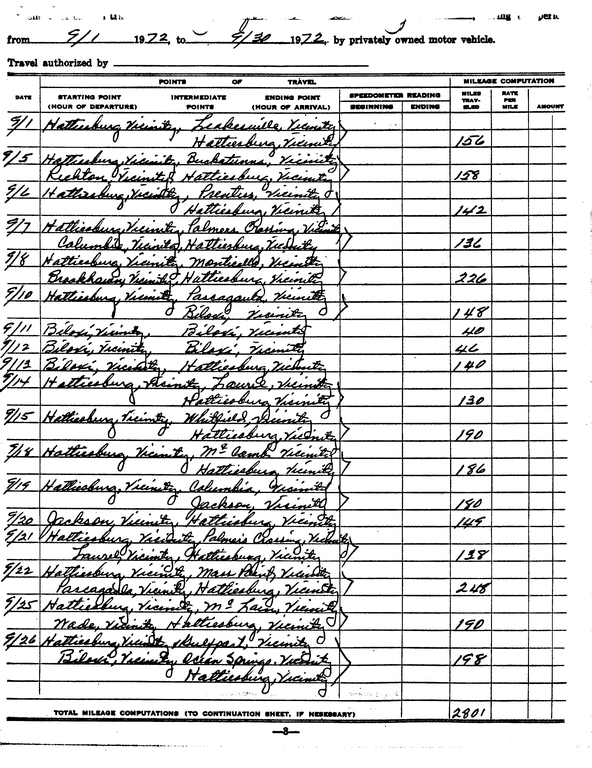 from 9/1 1972, to 9/30 1972, by privately owned motor vehicle.
Travel authorized by
POINTS OF TRAVEL MILEAGE COMPUTATION
DATE STARTING POINT (HOUR OF DEPARTURE) INTERMEDIATE POINTS ENDING POINT (HOUR OF ARRIVAL) SPEEDOMETER READING BEGINNING ENDING MILES TRAV- ELED RATE PER MILE AMOUNT
9/1 Hattiesburg Vicinity, Leakesville, Vicinity
Hattiesburg, Vicinity 156
9/5 Hattiesburg Vicinity, Buckatunna, Vicinity
Richton, Vicinity Hattiesburg, Vicinity 158
9/6 Hattiesburg Vicinity, Prentiss, Vicinity
Hattiesburg, Vicinity 142
9/7 Hattiesburg Vicinity, Palmers Crossing, Vicinity
Columbia, Vicinity, Hattiesburg, Vicinity 136
9/8 Hattiesburg Vicinity, Monticello, Vicinity
Brookhaven, Vicinity, Hattiesburg, Vicinity 226
9/10 Hattiesburg, Vicinity Pascagoula, Vicinity
Biloxi, Vicinity 148
9/11 Biloxi, Vicinity, Biloxi, Vicinity 40
9/12 Biloxi, Vicinity Biloxi, Vicinity 46
9/13 Biloxi, Vicinity, Hattiesburg, Vicinity 140
9/14 Hattiesburg, Vicinity, Laurel, Vicinity
Hattiesburg, Vicinity 130
9/15 Hattiesburg, Vicinity, Whitfield, Vicinity
Hattiesburg, Vicinity 190
9/18 Hattiesburg Vicinity, Mc Comb Vicinity
Hattiesburg, Vicinity 186
9/19 Hattiesburg, Vicinity, Columbia, Vicinity
Jackson, Vicinity 180
9/20 Jackson, Vicinity, Hattiesburg, Vicinity 149
9/21 Hattiesburg, Vicinity, Palmers Crossing, Vicinity
Laurel, Vicinity, Hattiesburg, Vicinity 138
9/22 Hattiesburg, Vicinity, Moss Point, Vicinity
Pascagoula, Vicinity, Hattiesburg, Vicinity 248
9/25 Hattiesburg, Vicinity, Mc Lain, Vicinity
Wade, Vicinity, Hattiesburg, Vicinity 190
9/26 Hattiesburg, Vicinity, Gulfport, Vicinity
Biloxi, Vicinity, Ocean Springs, Vicinity 198
Hattiesburg, Vicinity
TOTAL MILEAGE COMPUTATIONS (TO CONTINUATION SHEET, IF NECESSARY) 2801
—3—